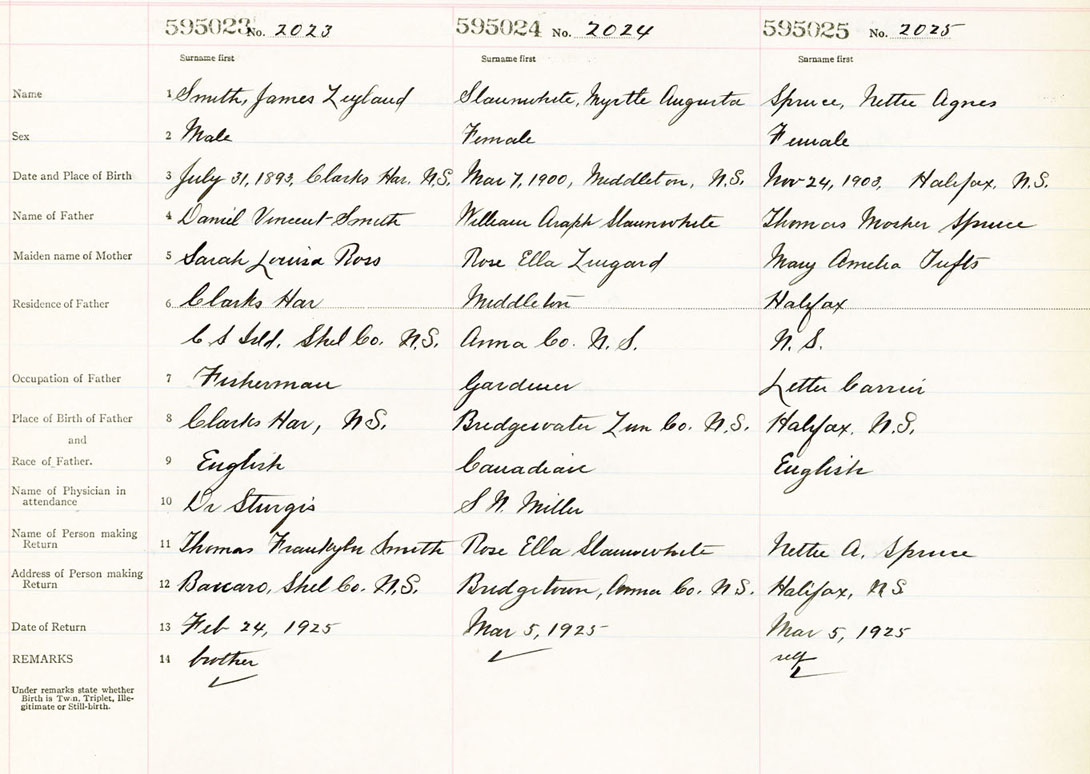 595023 No. 2023 595024 No. 2024 595025 No. 2025
Surname first Surname first Surname first
Name 1 Smith, James Leyland Slaunwhite, Myrtle Augusta Spruce, Nettie Agnes
Sex 2 Male Female Female
Date and Place of Birth 3 July 31, 1893, Clarks Har. N.S. Mar 7, 1900, Middleton, N.S. Nov 24, 1903, Halifax, N.S.
Name of Father 4 Daniel Vincent Smith William Slaunwhite Thomas Mosher Spruce
Maiden name of Mother 5 Sarah Louisa Ross Rose Ella Zwigard Mary Amelia Tufts
Residence of Father 6 Clarks Har Middleton Halifax
C S Isld. Shel Co. N.S. Anna Co. N.S. N.S.
Occupation of Father 7 Fisherman Gardiner Letter Carrier
Place of Birth of Father 8 Clarks Har, N.S. Bridgewater Lun Co. N.S. Halifax. N.S.
and
Race of Father. 9 English Canadian English
Name of Physician in
attendance 10 Dr Sturgis S N. Miller
Name of Person making
Return 11 Thomas Franklyn Smith Rose Ella Slaunwhite Nettie A. Spruce
Address of Person making
Return 12 Baccaro, Shel Co. N.S. Bridgetown, Anna Co. N.S. Halifax, N S
Date of Return 13 Feb 24, 1925 Mar 5, 1925 Mar 5, 1925
REMARKS 14 brother self
Under remarks state whether
Birth is Twin, Triplet, Ille-
gitimate or Still-birth.